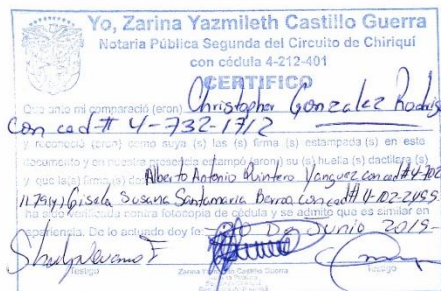 Yo, Zarina Yazmileth Castillo Guerra
Notaria Pública Segunda del Circuito de Chiriquí
con cédula 4-212-401
CERTIFICO
Que ante mi compareció (eron) Christopher Gonzalez Rodrig
con ced # 4-732-1712
y reconoció (eron) como suya (s) las (s) firma (s) estampada (s) en este
documento y en nuestra presencia estampó (aron) su (s) huella (s) dactilera (s)
y que la(s) firma (s) de Alberto Antonio Quintero Vanguez con ced# 4-702
Gisela Susana Santamaria Barroa con ced# 4-102-2455
ha sido verificada contra fotocopia de cédula y se admite que es similar en
apariencia. De lo actuado doy fe De Junio 2015-
Testigo Zarina Yazmileth Castillo Guerra Testigo